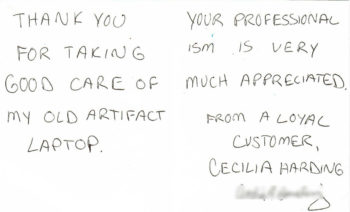 THANK YOU
FOR TAKING
GOOD CARE OF
MY OLD ARTIFACT
LAPTOP.
YOUR PROFESSIONAL
ISM IS VERY
MUCH APPRECIATED.
FROM A LOYAL
CUSTOMER,
CECILIA HARDING